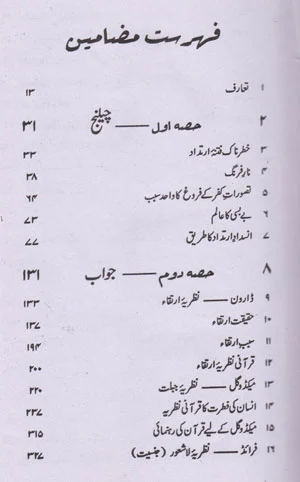 فہرست مضامین
۱ تعارف ۱۳
۲ حصہ اول —— چیلنج ۳۱
۳ خطرناک فتنۂ ارتداد ۳۳
۴ نارِ فرنگ ۳۸
۵ تصوراتِ کفر کے فروغ کا واحد سبب ۶۴
۶ بے بسی کا عالم ۷۳
۷ انسدادِ ارتداد کا طریق ۷۷
۸ حصہ دوم —— جواب ۱۳۱
۹ ڈارون —— نظریۂ ارتقاء ۱۳۳
۱۰ حقیقت ارتقاء ۱۳۷
۱۱ سببِ ارتقاء ۱۹۴
۱۲ قرآنی نظریۂ ارتقاء ۲۰۰
۱۳ میکڈوگل —— نظریۂ جبلت ۲۲۰
۱۴ انسان کی فطرت کا قرآنی نظریہ ۲۳۷
۱۵ میکڈوگل کے لیے قرآن کی رہنمائی ۳۱۵
۱۶ فرائڈ —— نظریۂ لاشعور (جنسیت) ۳۲۷